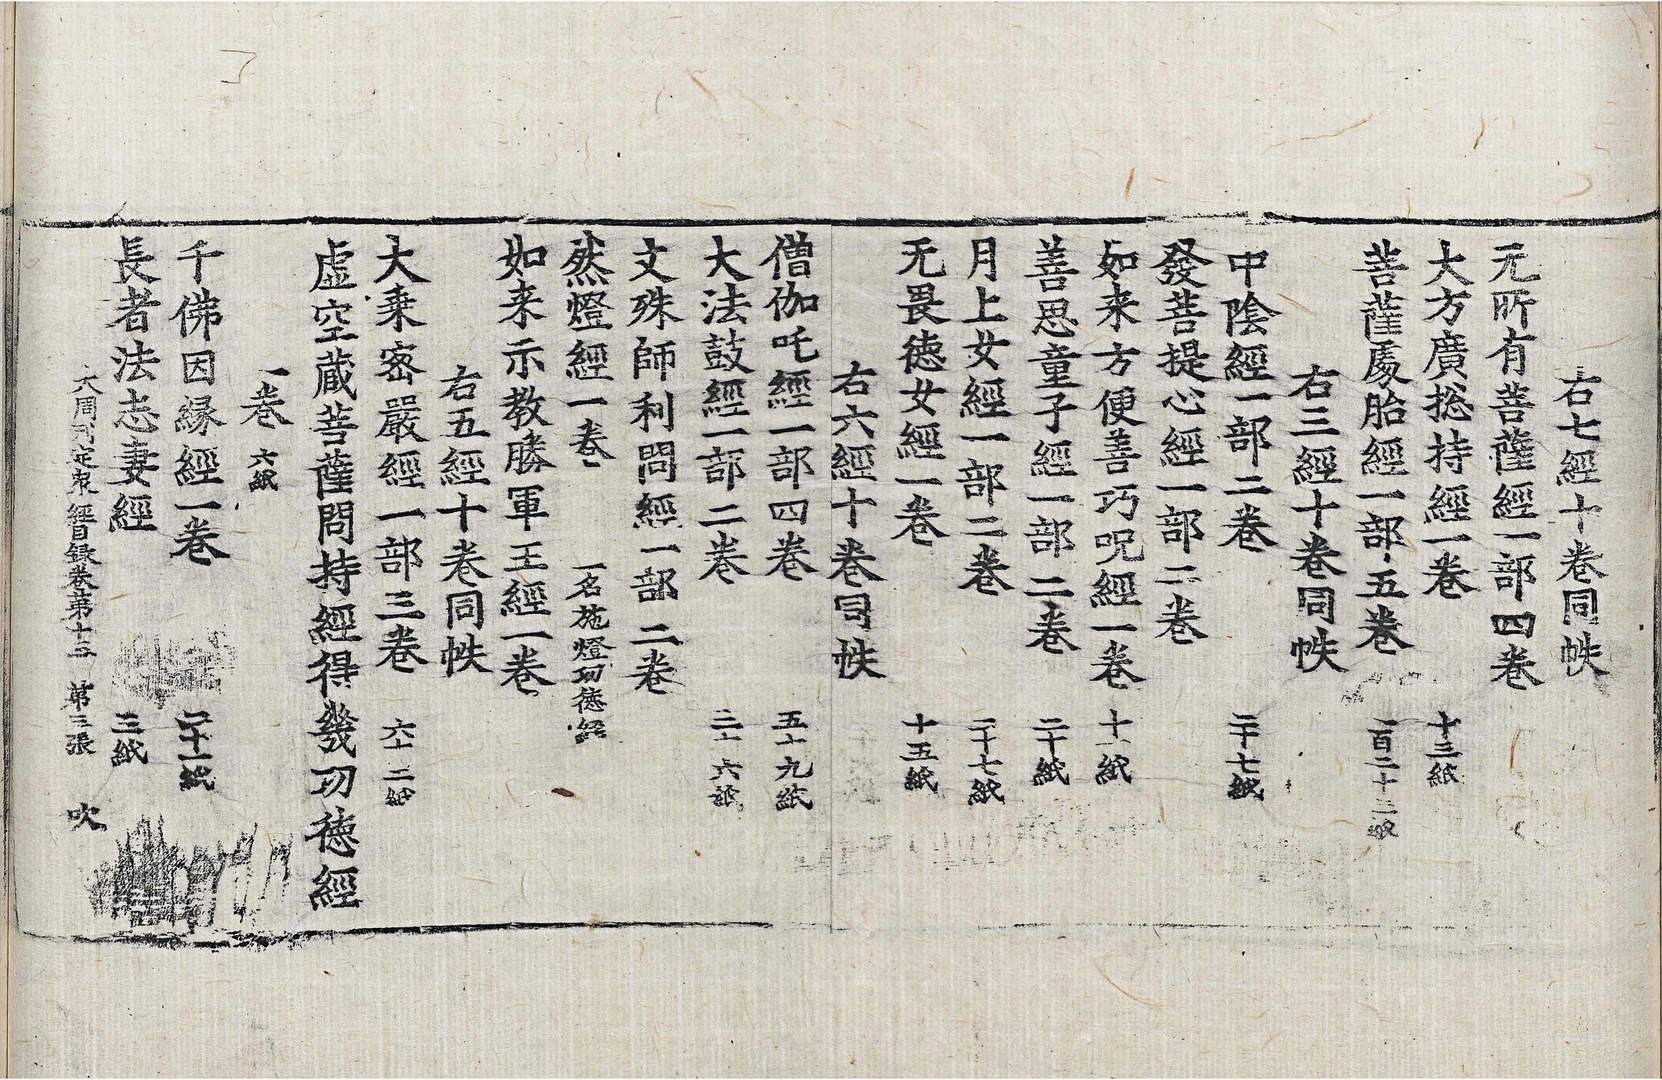 右七經十卷同帙
无所有菩薩經一部四卷
大方廣捴持經一卷 十三紙
菩薩處胎經一部五卷 一百二十二紙
右三經十卷同帙
中陰經一部二卷 二十七紙
發菩提心經一部二卷
如来方便善巧呪經一卷 十一紙
善思童子經一部二卷 二十紙
月上女經一部二卷 二十七紙
无畏德女經一卷 十五紙
右六經十卷同帙
僧伽吒經一部四卷 五十九紙
大法鼓經一部二卷 二十六紙
文殊師利問經一部二卷
然燈經一卷 一名施燈功德經
如来示教勝軍王經一卷
右五經十卷同帙
大乘密嚴經一部三卷 六十二紙
虛空蔵菩薩問持經得幾功德經
一卷 六紙
千佛因緣經一卷 二十一紙
長者法志妻經 三紙
大周刊定衆經目錄卷第十三 第三張 吹